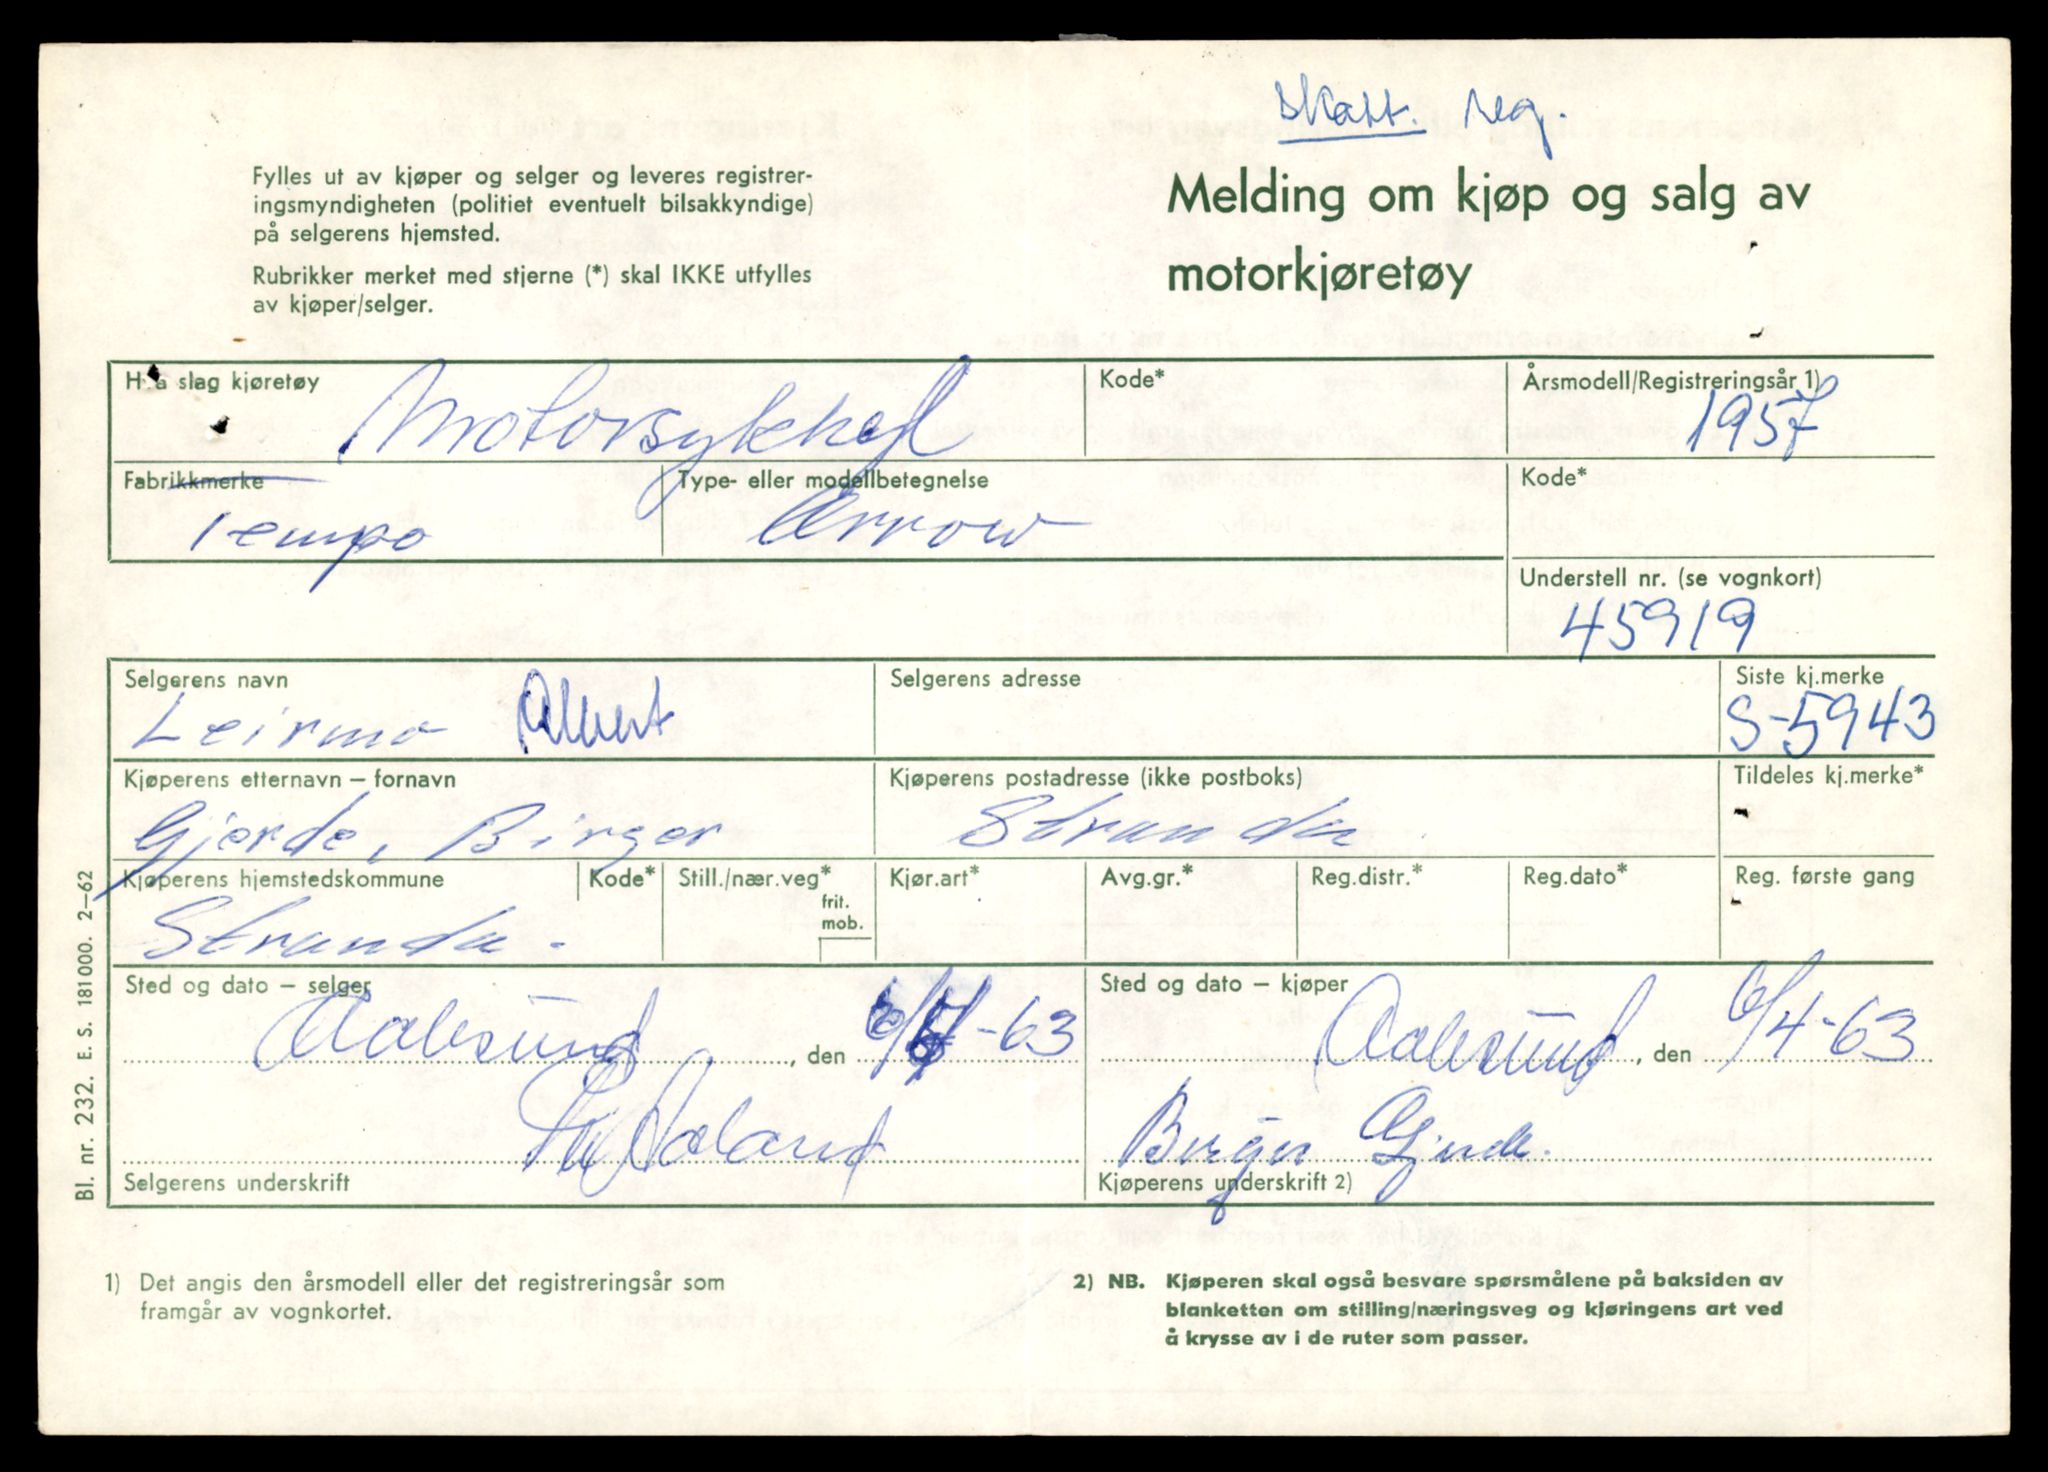 Skatt. reg.
Fylles ut av kjøper og selger og leveres registrer-
ingsmyndigheten (politiet eventuelt bilsakkyndige)
på selgerens hjemsted.
Rubrikker merket med stjerne (*) skal IKKE utfylles
av kjøper/selger.
Melding om kjøp og salg av
motorkjøretøy
Hva slag kjøretøy
Motorsykkel
Kode*
Årsmodell/Registreringsår 1)
1957
Fabrikkmerke
Tempo
Type- eller modellbetegnelse
Arrow
Kode*
Understell nr. (se vognkort)
45919
Selgerens navn
Leirmo Albert
Selgerens adresse
Siste kj.merke
S-5943
Kjøperens etternavn – fornavn
Gjerde, Birger
Kjøperens postadresse (ikke postboks)
Stranda
Tildeles kj.merke*
Kjøperens hjemstedskommune
Stranda.
Kode*
Still./nær.veg*
frit.
mob.
Kjør.art*
Avg.gr.*
Reg.distr.*
Reg.dato*
Reg. første gang
Sted og dato – selger
Aalesund, den 6/4-63
Selgerens underskrift
Sted og dato – kjøper
Aalesund, den 6/4-63
Birger Gjerde.
Kjøperens underskrift 2)
1) Det angis den årsmodell eller det registreringsår som
framgår av vognkortet.
2) NB. Kjøperen skal også besvare spørsmålene på baksiden av
blanketten om stilling/næringsveg og kjøringens art ved
å krysse av i de ruter som passer.
Bl. nr. 232. E. S. 181000. 2–62